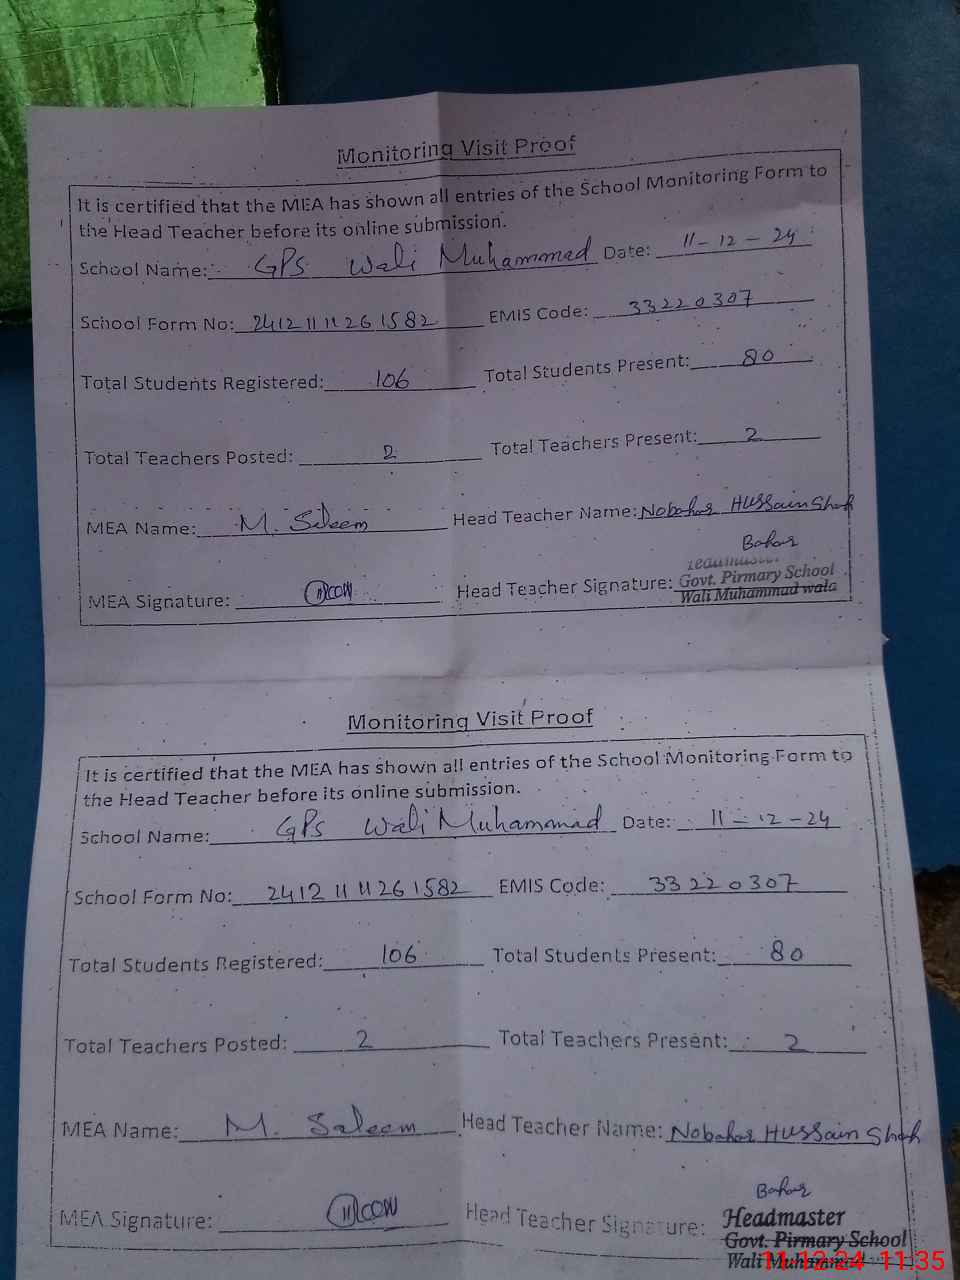 Monitoring Visit Proof
It is certified that the MEA has shown all entries of the School Monitoring Form to
the Head Teacher before its online submission.
School Name: GPS Wali Muhammad Date: 11-12-24
School Form No: 2412111126 1582 EMIS Code: 33220307
Total Students Registered: 106 Total Students Present: 80
Total Teachers Posted: 2 Total Teachers Present: 2
MEA Name: M. Saleem Head Teacher Name: Nobahar Hussain Shah
Bahar
Headmaster
MEA Signature: Head Teacher Signature: Govt. Pirmary School
Wali Muhammad wala
Monitoring Visit Proof
It is certified that the MEA has shown all entries of the School Monitoring Form to
the Head Teacher before its online submission.
School Name: GPS Wali Muhammad Date: 11-12-24
School Form No: 2412111126 1582 EMIS Code: 33220307
Total Students Registered: 106 Total Students Present: 80
Total Teachers Posted: 2 Total Teachers Present: 2
MEA Name: M. Saleem Head Teacher Name: Nobahar Hussain Shah
Bahar
MEA Signature: Head Teacher Signature: Headmaster
Govt. Pirmary School
Wali Muhammad
11-12-24 11:35